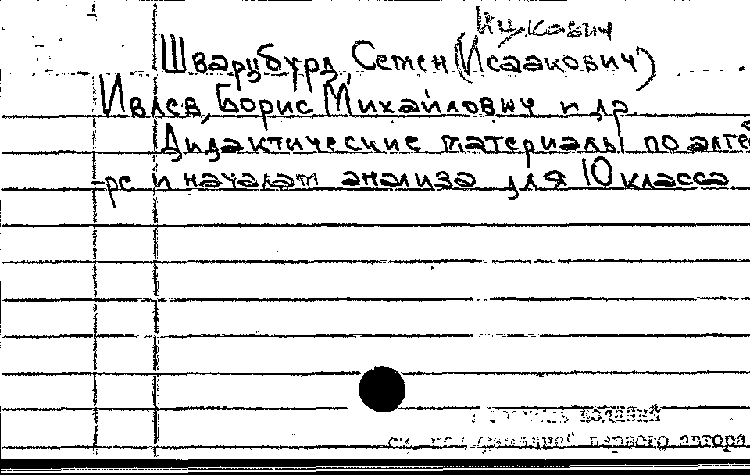 Ицкович
Шварцбурд, Семен (Исаакович)
Ивлев, Борис Михайлович и др
Дидактические материалы по алгеб
-ре и началам анализа для 10 класса
изданий
см. первого автора